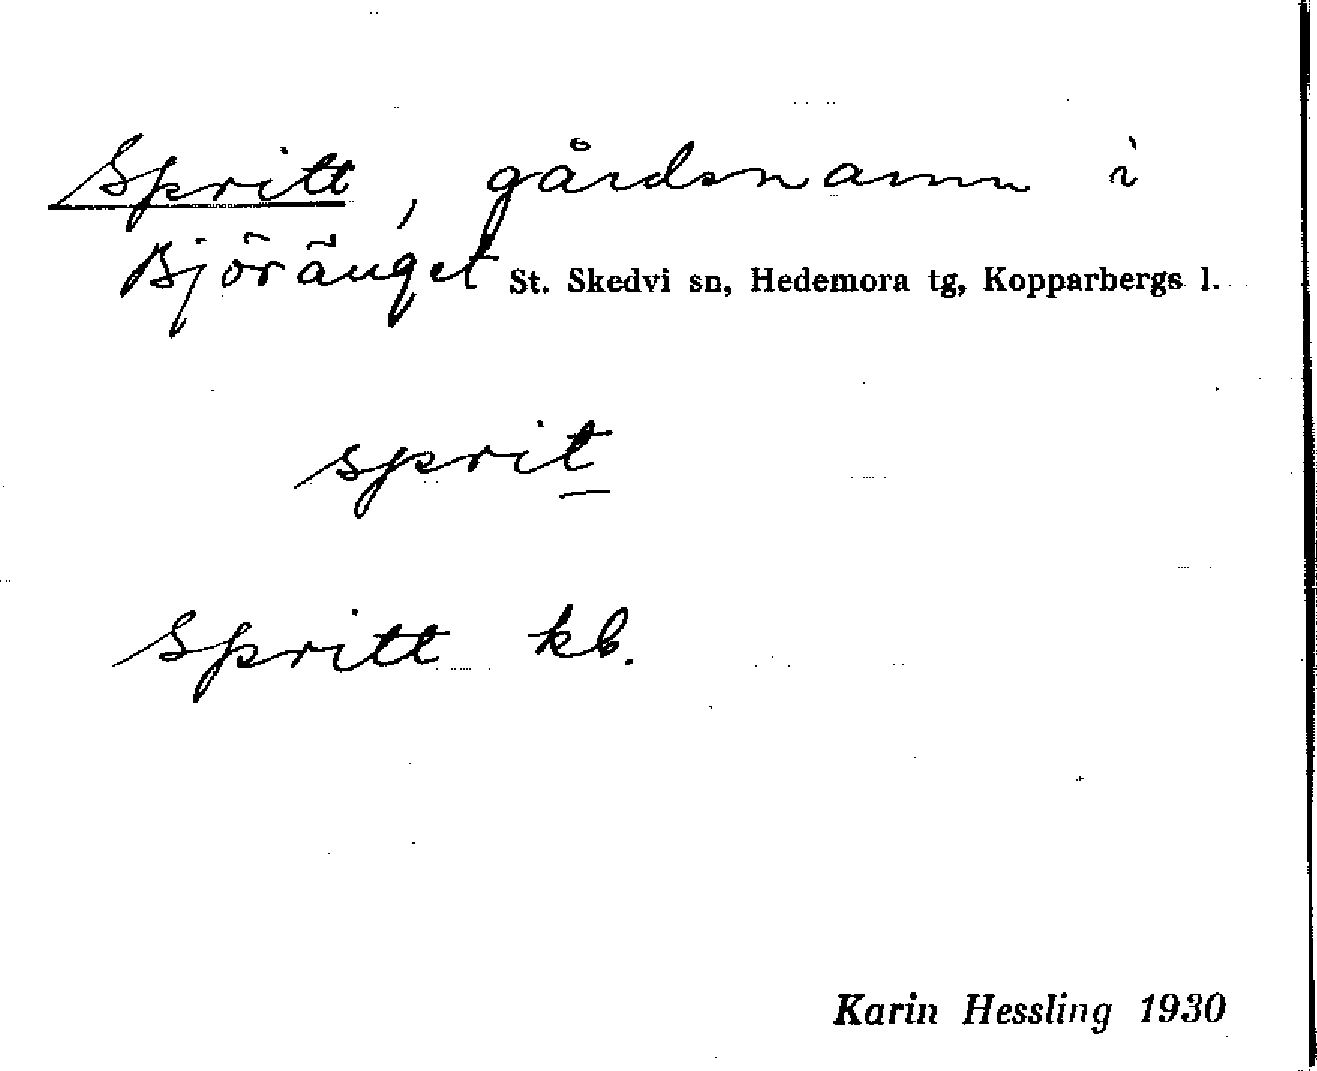 Spritt, gårdsnamn i
Björänget St. Skedvi sn, Hedemora tg, Kopparbergs l.
sprit
Spritt kb.
Karin Hessling 1930